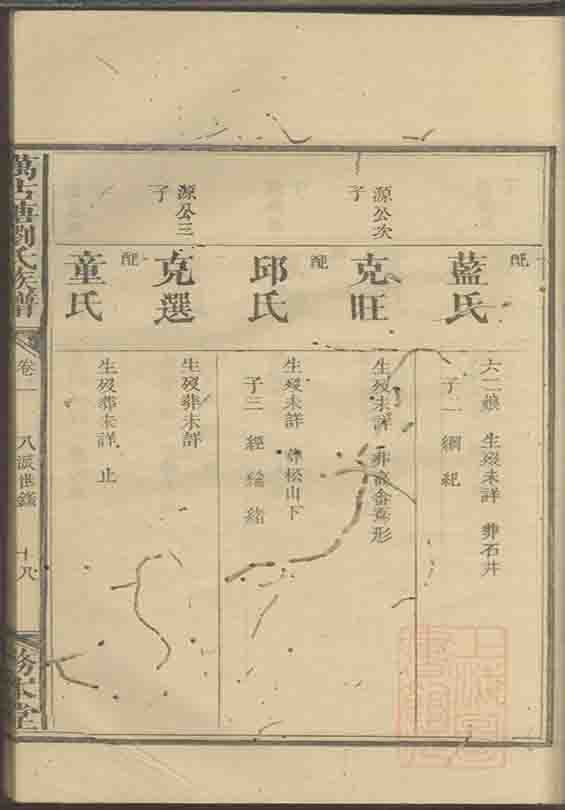 配
藍氏
六二娘 生歿未詳 葬石井
子一 綱紀
源公次
子
克旺
生歿未詳 葬 形
配
邱氏
生歿未詳 葬松山下
子三 經 綸 緒
源公三
子
克選
生歿葬未詳
配
童氏
生歿葬未詳 止
萬古塘劉氏族譜
卷二
八派世錄
十八
務本堂
上海圖書館藏